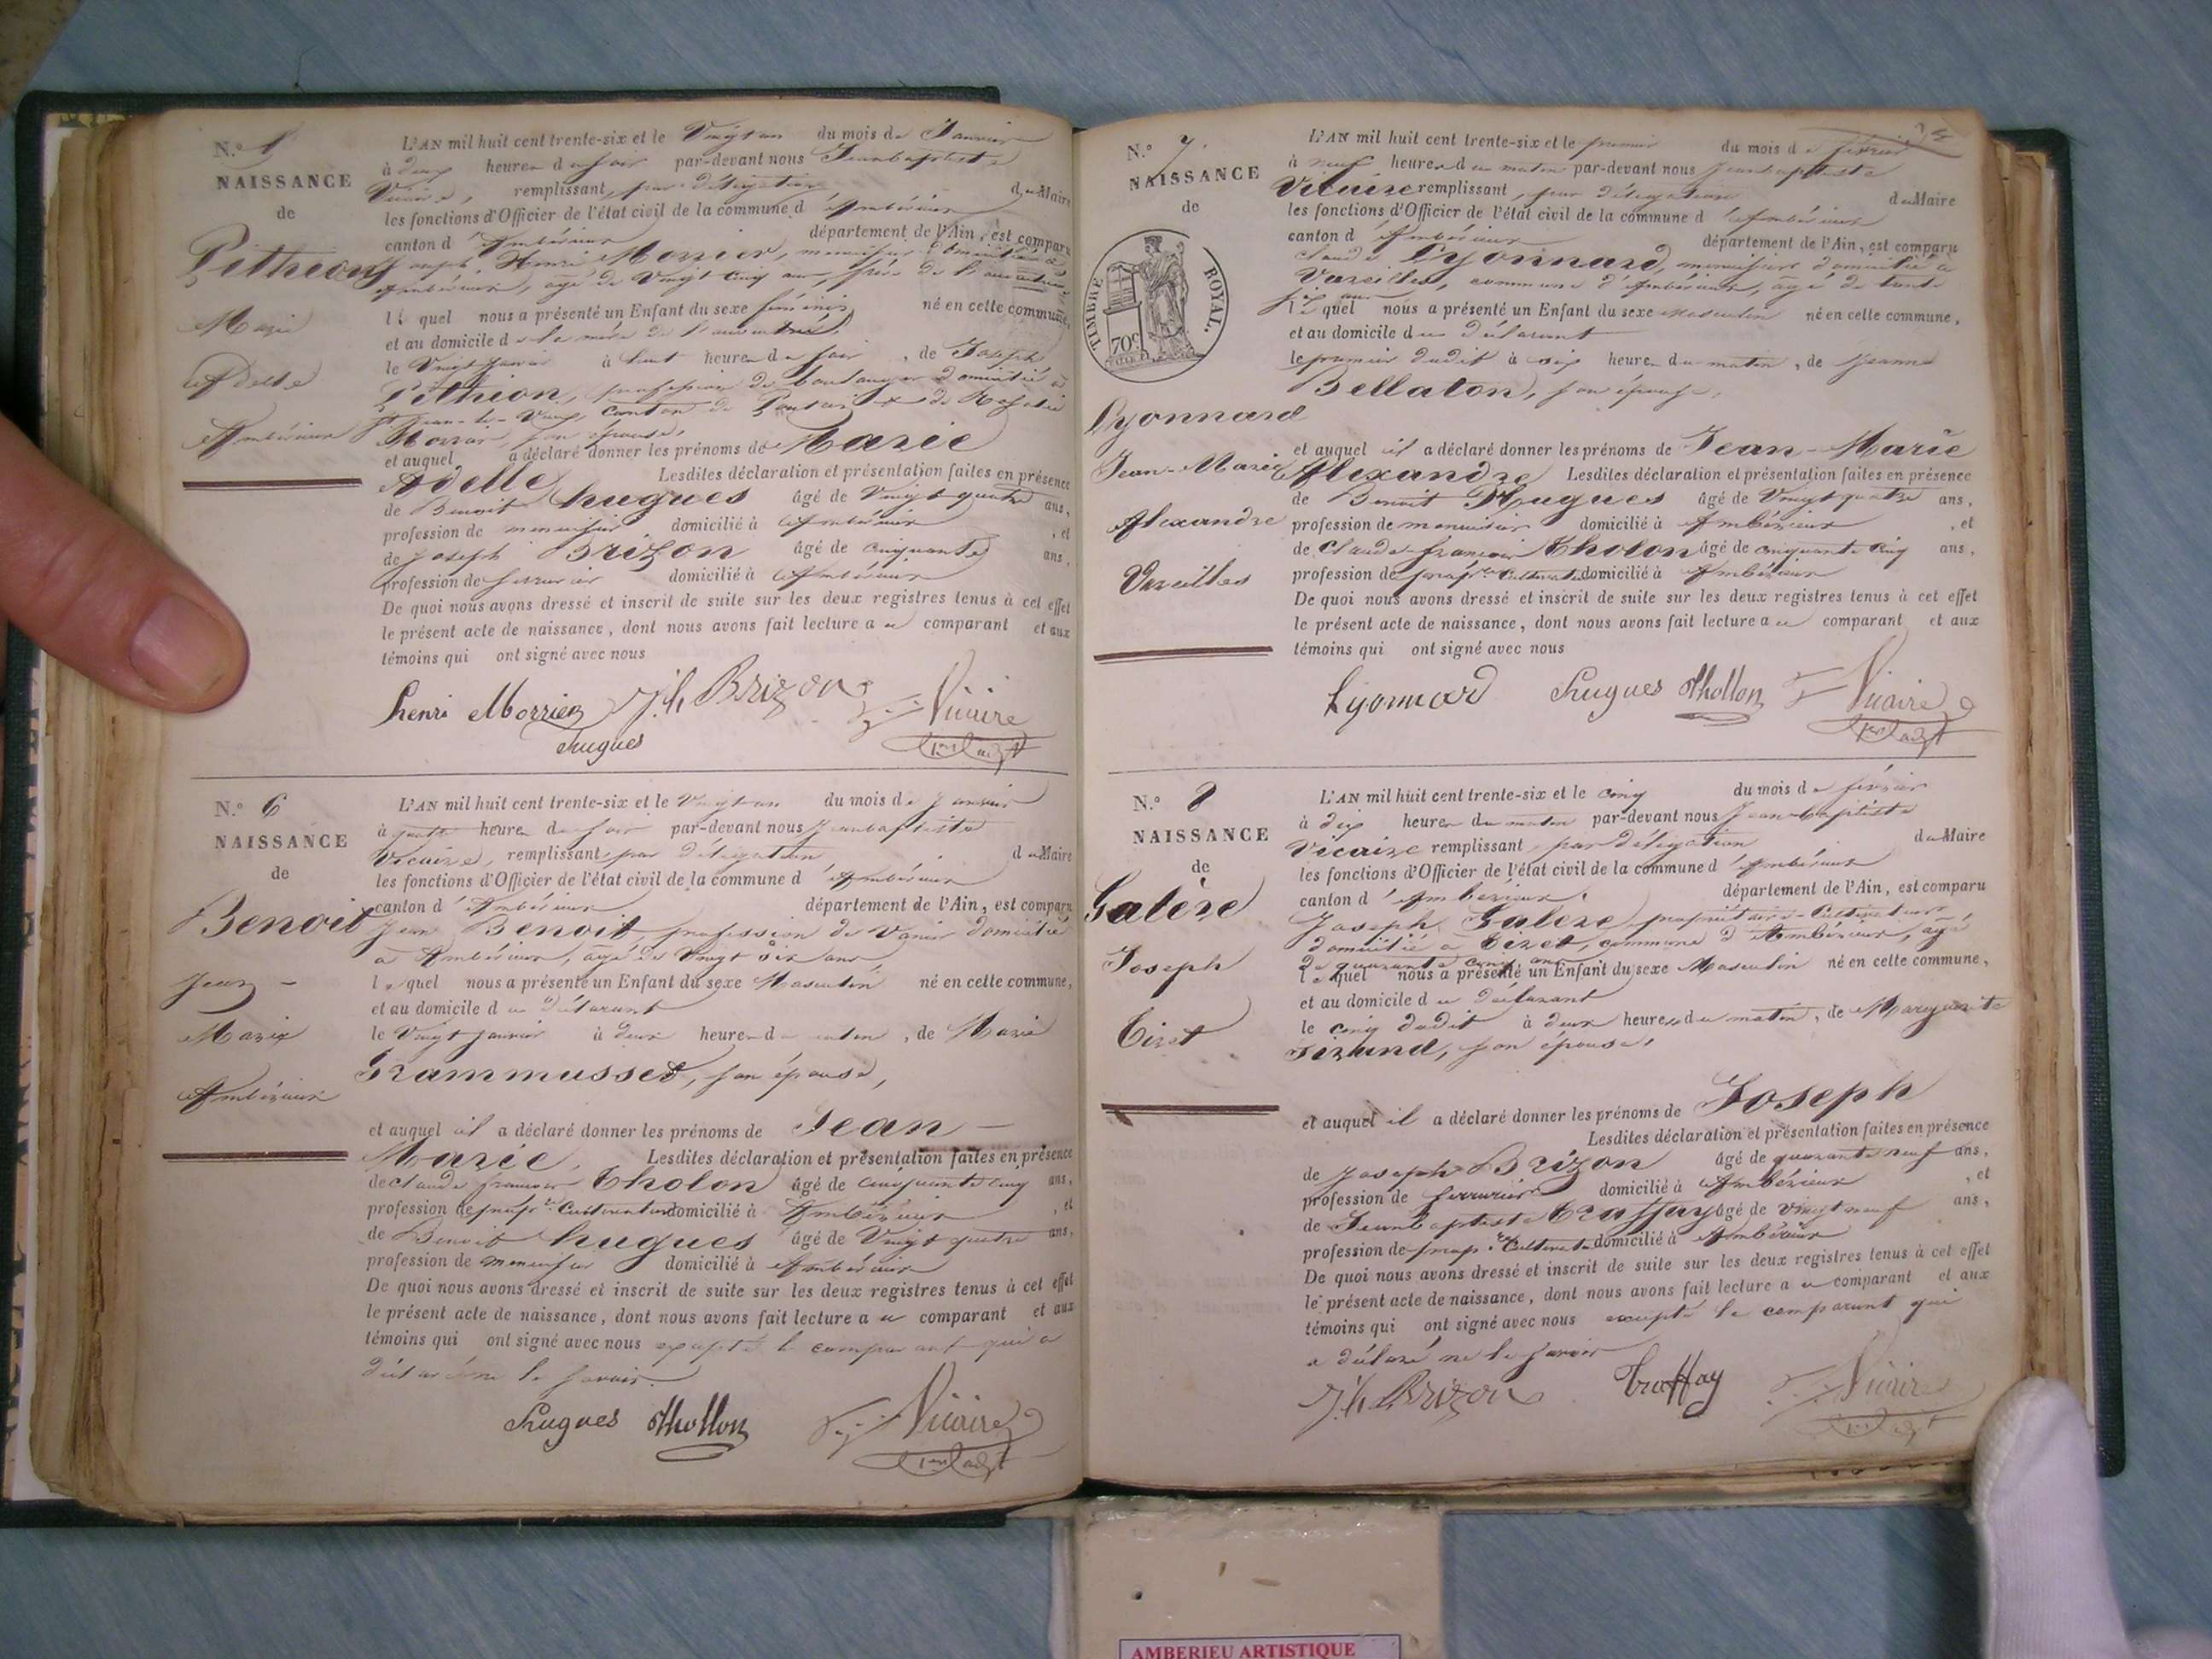 N.o 5
NAISSANCE
de
Pithion
Marie
Adelle
Ambérieux
L'AN mil huit cent trente-six et le Vingt un du mois de Janvier
à deux heures du soir par-devant nous Jean baptiste
Vicaire, remplissant, par délégation du Maire
les fonctions d'Officier de l'état civil de la commune d'Ambérieux
canton d'Ambérieux département de l'Ain, est comparu
joseph Henri Morrier, menuisier domicilié à
Ambérieux, agé de Vingt cinq ans, frère de l'accouchée
lequel nous a présenté un Enfant du sexe féminin né en cette commune,
et au domicile de la mère de l'accouchée
le Vingt Janvier à huit heures du soir, de Joseph
Pithion, profession de boulanger domicilié à
St jean-le-Vieux, canton de Poncin et de
son épouse,
et auquel a déclaré donner les prénoms de Marie
Adelle Lesdites déclaration et présentation faites en présence
de Benoit hugues âgé de Vingt quatre ans,
profession de menuisier domicilié à Ambérieux, et
de Joseph Brizon âgé de cinquante ans,
profession de serrurier domicilié à Ambérieux
De quoi nous avons dressé et inscrit de suite sur les deux registres tenus à cet effet
le présent acte de naissance, dont nous avons fait lecture au comparant et aux
témoins qui ont signé avec nous
henri Morrier J.h Brizon Vicaire
hugues 1er adjt
N.o 6
NAISSANCE
de
Benoit
Jean -
Marie
Ambérieux
L'AN mil huit cent trente-six et le Vingt un du mois de Janvier
à quatre heures du soir par-devant nous Jean baptiste
Vicaire, remplissant, par délégation du Maire
les fonctions d'Officier de l'état civil de la commune d'Ambérieux
canton d'Ambérieux département de l'Ain, est comparu
Jean Benoit profession de domicilié
a Ambérieux, agé de Vingt six ans,
lequel nous a présenté un Enfant du sexe Masculin né en cette commune,
et au domicile du déclarant
le Vingt janvier à deux heures du matin, de Marie
Grammusset, son épouse,
et auquel il a déclaré donner les prénoms de Jean -
Marie, Lesdites déclaration et présentation faites en présence
de claude francois Tholon âgé de cinquante cinq ans,
profession de propre Cultivateur domicilié à Ambérieux, et
de Benoit hugues âgé de Vingt quatre ans,
profession de menuisier domicilié à Ambérieux
De quoi nous avons dressé et inscrit de suite sur les deux registres tenus à cet effet
le présent acte de naissance, dont nous avons fait lecture au comparant et aux
témoins qui ont signé avec nous excepté le comparant qui a
déclaré ne le savoir.
hugues thollon Vicaire
1er adjt
N.o 7
NAISSANCE
de
TIMBRE ROYAL.
70c
Lyonnard
Jean-Marie
Alexandre
Vareilles
L'AN mil huit cent trente-six et le premier du mois de février
à neuf heures du matin par-devant nous Jean baptiste
Vicaire remplissant, par délégation du Maire
les fonctions d'Officier de l'état civil de la commune d'Ambérieux
canton d'Ambérieux département de l'Ain, est comparu
claude Lyonnard, menuisier domicilié à
Vareilles, commune d'Ambérieux, âgé de trente
six ans
lequel nous a présenté un Enfant du sexe Masculin né en cette commune,
et au domicile du déclarant
le premier dudit à six heures du matin, de Jeanne
Bellaton, son épouse,
et auquel il a déclaré donner les prénoms de Jean-Marie
Alexandre Lesdites déclaration et présentation faites en présence
de Benoit Hugues âgé de Vingt quatre ans,
profession de menuisier domicilié à Ambérieux, et
de claude-francois Tholon âgé de cinquante cinq ans,
profession de propre Cultivateur domicilié à Ambérieux
De quoi nous avons dressé et inscrit de suite sur les deux registres tenus à cet effet
le présent acte de naissance, dont nous avons fait lecture au comparant et aux
témoins qui ont signé avec nous
Lyonnard hugues thollon Vicaire
1er adjt
N.o 8
NAISSANCE
de
Galère
Joseph
Tiret
L'AN mil huit cent trente-six et le cinq du mois de février
à dix heures du matin par-devant nous Jean-baptiste
Vicaire remplissant, par délégation du Maire
les fonctions d'Officier de l'état civil de la commune d'Ambérieux
canton d'Ambérieux, département de l'Ain, est comparu
Joseph Galère, propriétaire-Cultivateur,
domicilié à Tiret, commune d'Ambérieux, agé
de quarante cinq ans
lequel nous a présenté un Enfant du sexe Masculin né en cette commune,
et au domicile du déclarant
le cinq dudit à deux heures du matin, de Marguerite
son épouse,
et auquel il a déclaré donner les prénoms de Joseph
Lesdites déclaration et présentation faites en présence
de Joseph Brizon âgé de quarante neuf ans,
profession de Serrurier domicilié à Ambérieux, et
de Jean baptiste Traffay âgé de vingt neuf ans,
profession de propre Cultivateur domicilié à Ambérieux
De quoi nous avons dressé et inscrit de suite sur les deux registres tenus à cet effet
le présent acte de naissance, dont nous avons fait lecture au comparant et aux
témoins qui ont signé avec nous excepté le comparant qui
a déclaré ne le savoir
J.h Brizon Traffay Vicaire
1er adjt
AMBERIEU ARTISTIQUE